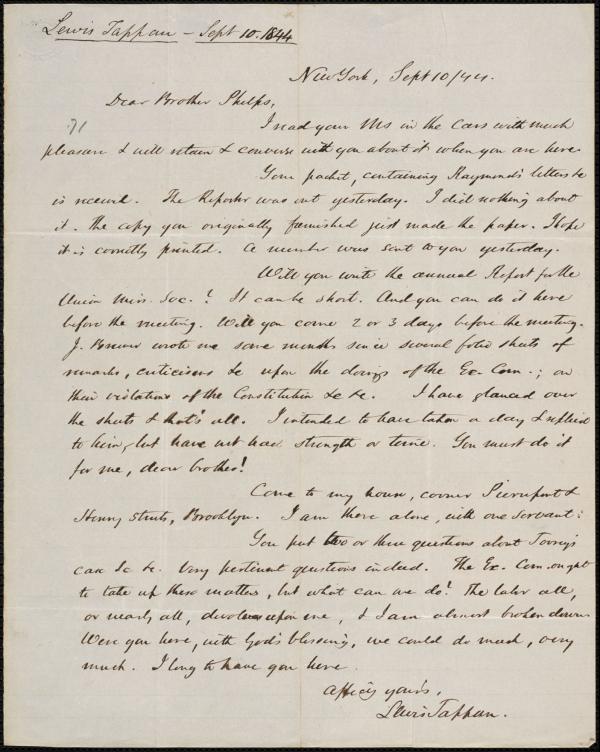 Lewis Tappan - Sept 10. 1844
New York, Sept 10/44.
Dear Brother Phelps,
71
I read your Ms in the cars with much
pleasure & will retain & converse with you about it when you are here.
Your packet, containing Raymond's letters &c
is received. The Reporter was out yesterday. I did nothing about
it. The copy you originally furnished just made the paper. I hope
it is correctly printed. A number was sent to you yesterday.
Will you write the annual Report for the
Union Miss. Soc.? It can be short. And you can do it here
before the meeting. Will you come 2 or 3 days before the meeting.
J. Brewer wrote me some months since several folio sheets of
remarks, criticisms &c upon the doings of the Ex. Com.; on
their violations of the Constitution &c &c. I have glanced over
the sheets & that's all. I intended to have taken a day & replied
to him, but have not had strength or time. You must do it
for me, dear brother!
Come to my house, corner Pierrepont &
Henry streets, Brooklyn. I am there alone, with one servant.
You put two or three questions about Torrey's
case &c &c. Very pertinent questions indeed. The Ex. Com. ought
to take up these matters, but what can we do? The labor all,
or nearly all, devolves upon me, & I am almost broken down.
Were you here, with God's blessing, we could do much, very
much. I long to have you here.
Affecy yours,
Lewis Tappan.